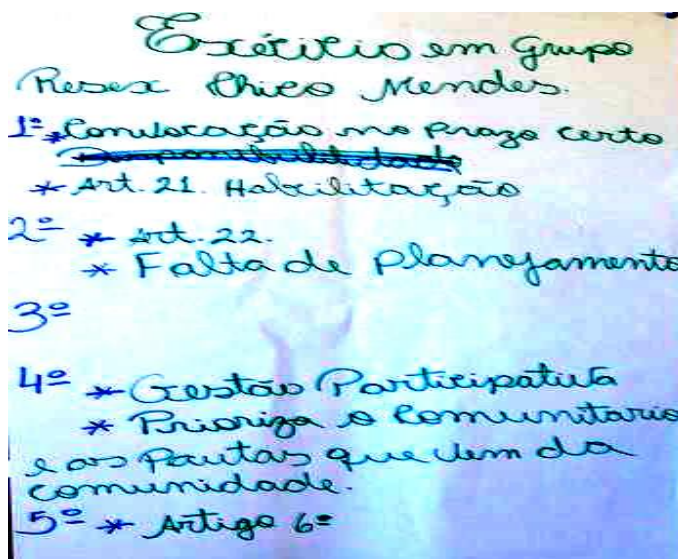 Exércicio em Grupo
Resex Chico Mendes.
1º * Convocação no prazo certo
* Art. 21. Habilitação
2º * Art. 22.
* Falta de planejamento
3º
4º * Gestão Participativa
* Prioriza o Comunitario
e as Pautas que vem da
comunidade.
5º * Artigo 6º